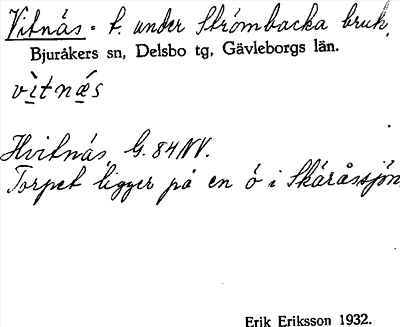 Vitnäs - t. under Strömbacka bruk,
Bjuråkers sn, Delsbo tg, Gävleborgs län.
vìtnæ̀s
Hvitnäs, G. 84 NV.
Torpet ligger på en ö i Skäråssjön.
Erik Eriksson 1932.